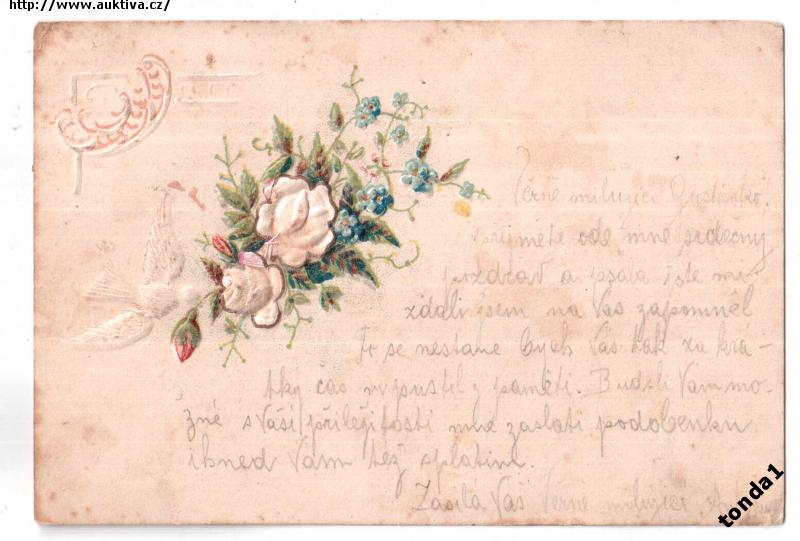 http://www.auktiva.cz/
Věrně milující
přijmete ode mne srdečný
pozdrav a psala jste mi
zdali jsem na Vás zapomněl
To se nestane bych Vás tak za krá-
tký čas vypustil z paměti. Budeli Vám mo-
žné s Vaší příležitostí mne zaslati podobenku
ihned Vám též splatím.
Zasílá Vás Věrně milující
tonda1